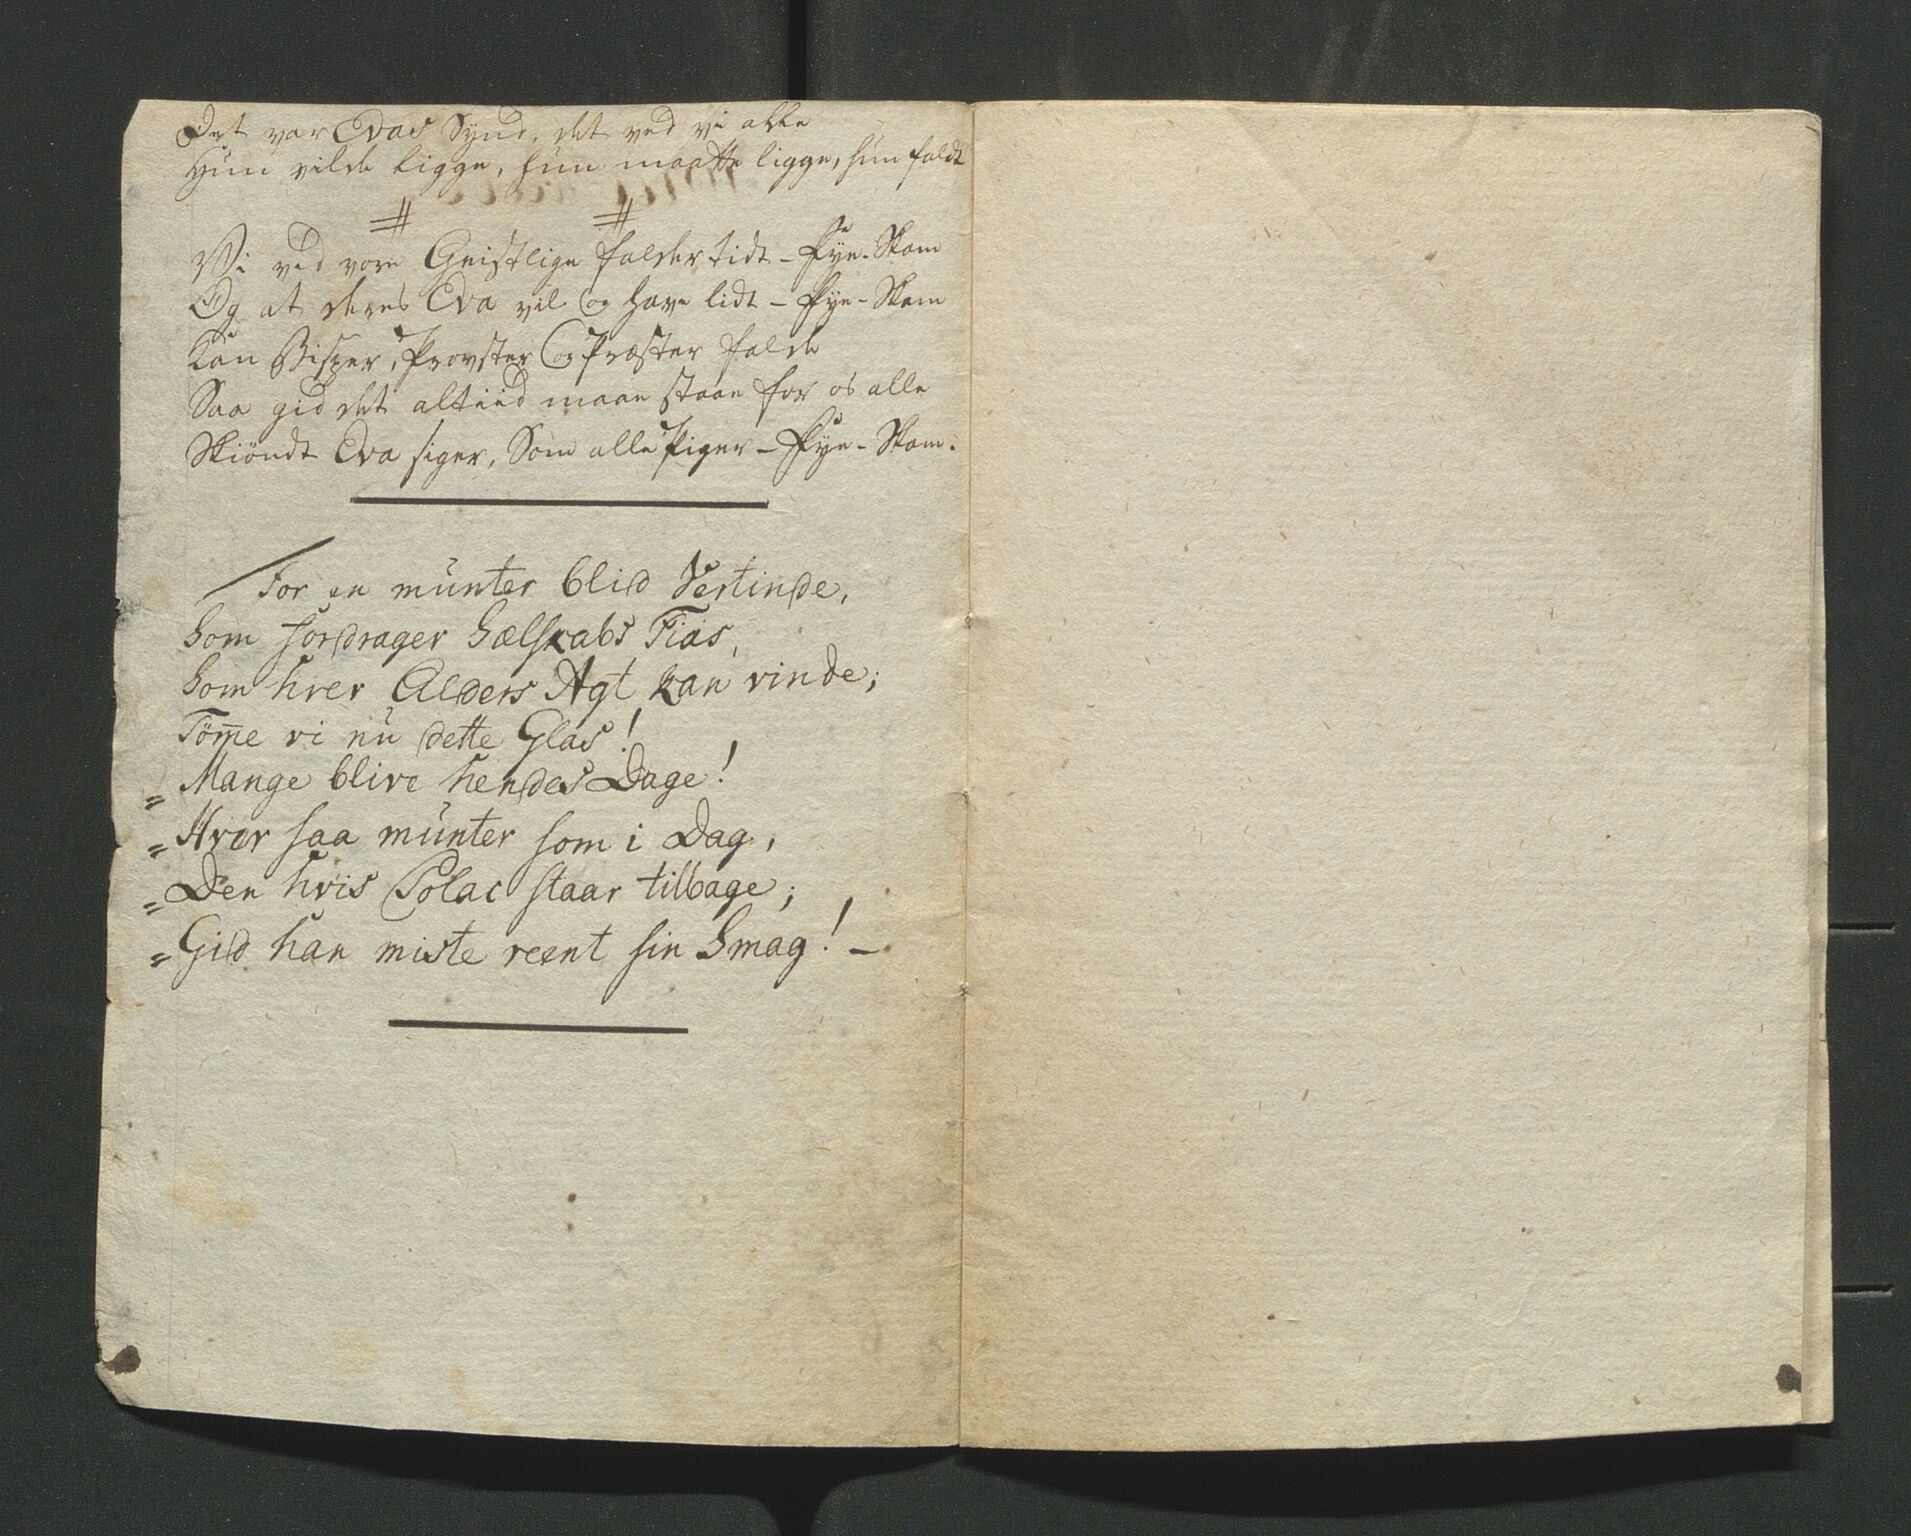 Det var Evas Synd, det ved vi alle
Hun vilde ligge, hun maatte ligge, hun faldt
Vi ved vore Geistlige falder tidt - Fÿe - Skam
Og at deres Eva vil og have lidt - Fÿe - Skam
Kan Bisper, Provster og Præster falde
Saa gid det altiid maae staae for os alle
Skiöndt Eva siger, Som alle Piger - Fÿe - Skam.
For en munter blid Vertinde,
Som fordrager Sælskabs Fias,
Som hver Alders Agt kan vinde;
Töm̅e vi nu dette Glas!
= Mange blive hendes Dage!
= Hver saa munter som i Dag,
= Den hvis Polac staar tilbage;
= Gid han miste reent sin Smag! -